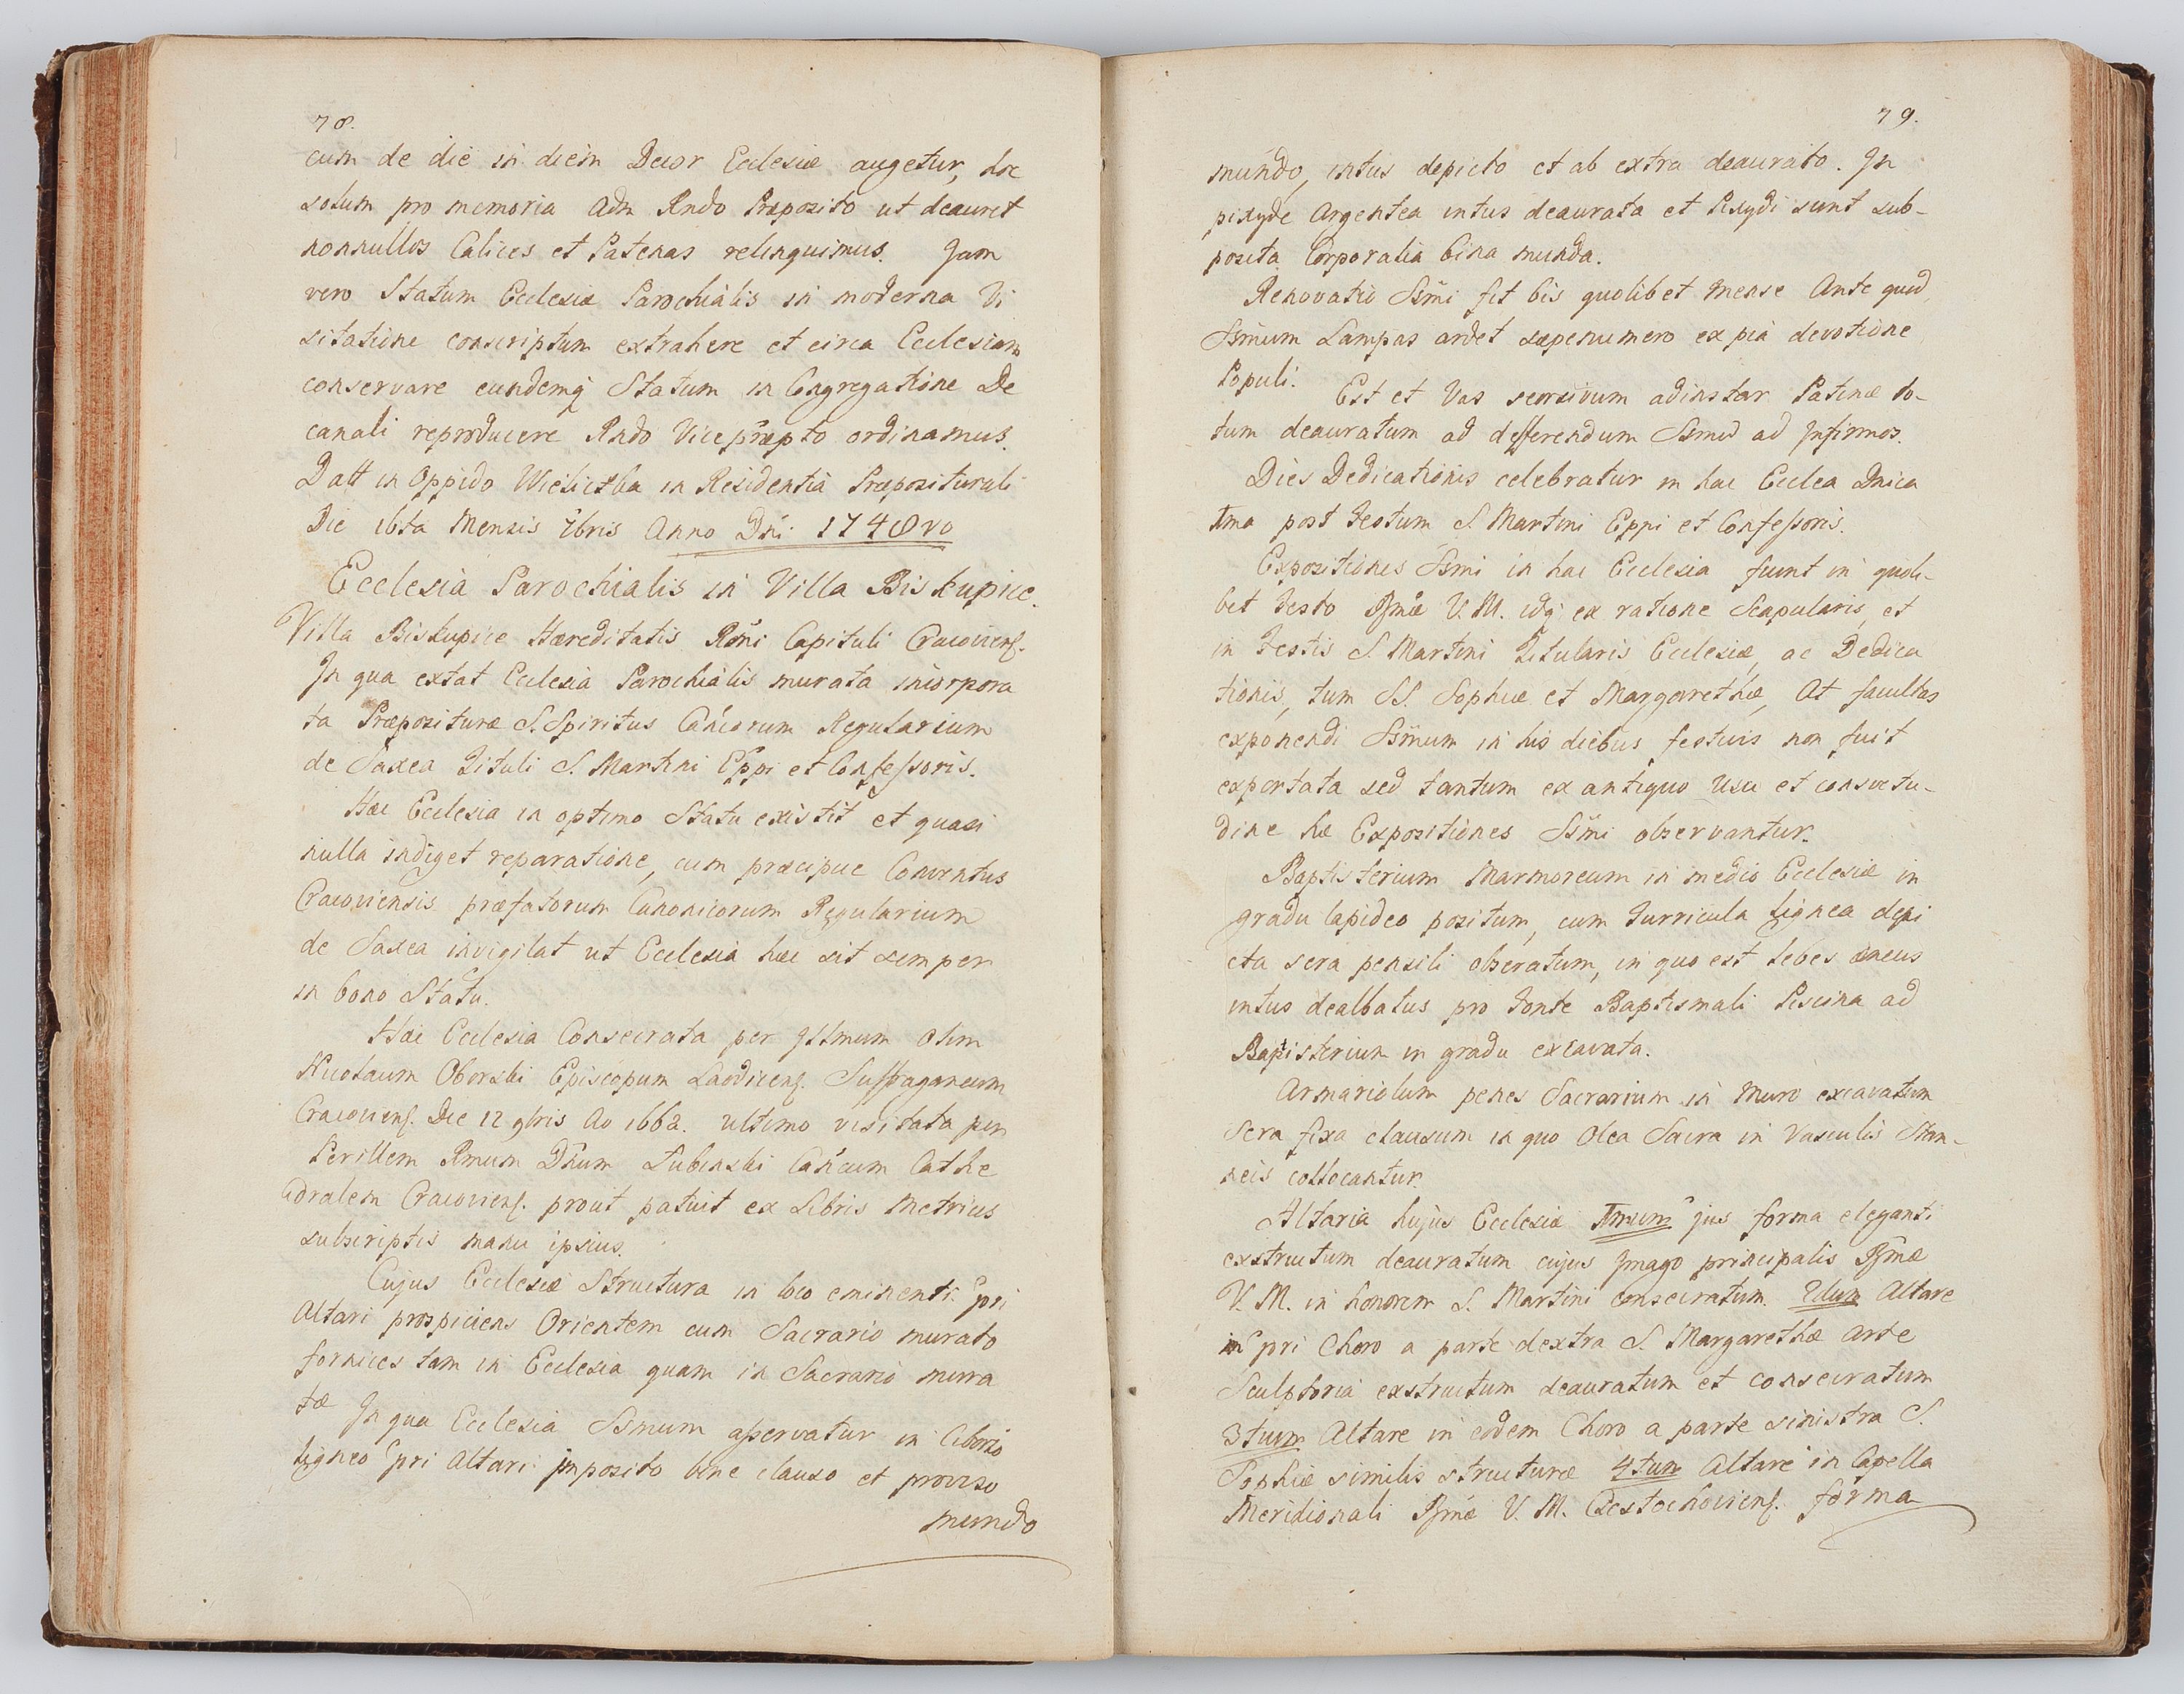 78.
cum de die in diem Decor Ecclesiæ augetur, hoc
solum pro memoria Adm Rndo Præposito ut deauret
nonnullos Calices et Patenas relinquimus. Jam
vero Statum Ecclesiæ Parochialis in moderna Vi
sitatione conscriptum extrahere et circa Ecclesiam
conservare eundemq Statum in Congregatione De
canali reproducere Rndo Vicepræpto ordinamus.
Datt in Oppido Wieliczka in Residentia Præpositurali
Die 16ta Mensis 7bris Anno Dni 1748vo
Ecclesia Parochialis in Villa Biskupice.
Villa Biskupice Hæreditatis Rmi Capituli Cracoviens.
In qua extat Ecclesia Parochialis murata incorpora
ta Præposituræ S. Spiritus Cancorum Regularium
de Saxea Tituli S. Martini Eppi et Confessoris.
Hæc Ecclesia in optimo Statu existit et quasi
nulla indiget reparatione, cum præcipue Conventus
Cracoviensis præfatorum Canonicorum Regularium
de Saxea invigilat ut Ecclesia hæc sit semper
in bono Statu.
Hæc Ecclesia Consecrata per Illmum Olim
Nicolaum Oborski Episcopum Laodicens. Suffraganeum
Cracoviens. Die 12 9bris Ao 1662. ultimo visitata per
Perillem Rmum Dnum Lubinski Cancum Cathe
dralem Cracoviens. prout patuit ex Libris Metrices
subscriptis manu ipsius.
Cujus Ecclesiæ Structura in loco eminenti pri
Altari prospiciens Orientem cum Sacrario murato
fornices tam in Ecclesia quam in Sacrario mura
tæ In qua Ecclesia Ssmum asservatur in Ciborio
ligneo pri Altari imposito bene clauso et proviso
mundo
79.
mundo, intus depicto et ab extra deaurato. In
pixyde Argentea intus deaurata et Pixydi sunt sub-
posita Corporalia bina munda.
Renovatio Ssmi fit bis quolibet Mense Ante quod
Ssmum Lampas ardet sæpenumero ex pia devotione
Populi. Est et Vas seorsivum adinstar Patinæ to-
tum deauratum ad defferendum Ssmum ad Infirmos.
Dies Dedicationis celebratur in hac Ecclea Dnica
Ima post Festum S. Martini Eppi et Confessoris.
Expositiones Ssmi in hac Ecclesia fiunt in quoli-
bet Festo Bsmæ V. M. idq ex ratione Scapularis, et
in Festis S. Martini Titularis Ecclesiæ, ac Dedica
tionis, tum SS. Sophiæ et Margarethæ, At facultas
exponendi Ssmum in his diebus festivis non fuit
exportata sed tantum ex antiquo Usu et consvetu-
dine hæ Expositiones Ssmi observantur.
Baptisterium Marmoreum in medio Ecclesiæ in
gradu lapideo positum, cum Turricula lignea depi
cta sera pensili obseratum, in quo est lebes æneus
intus dealbatus pro Fonte Baptismali Piscina ad
Baptisterium in gradu excavata.
Armariolum penes Sacrarium in Muro excavatum
sera fixa clausum in quo Olea Sacra in Vasculis Stan-
neis collocantur.
Altaria hujus Ecclesiæ Imum jus forma eleganti
exstructum deauratum cujus Imago principalis Bsmæ
V. M. in honorem S. Martini consecratum. 2dum Altare
in pri Choro a parte dextra S. Margarethæ Arte
Sculptoria exstructum deauratum et consecratum
3tium Altare in eodem Choro a parte sinistra S.
Sophiæ similis structuræ 4tum Altare in Capella
Meridionali Bsmæ V. M. Czestochoviens. forma